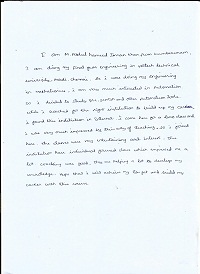 I am M. Abdul Hameed Imran khan from kumbakonam,
I am doing my final year engineering in vel tech technical
university, Avadi, chennai. As i was doing my Engineering
in mechatronics. i am very much interested in Automation
so i decided to study the course and other automation tools.
while i searched for the right institution to build up my career
i found this institution in internet. I came here for a free demo and
i was very much impressed by this way of teaching. So i joined
here. The classes was very entertaining and interest. The
institution have individual process class which inspired me a
lot. coaching was good, this is helping a lot to develop my
knowledge. Hope that i will achieve my target and build my
career with this course.